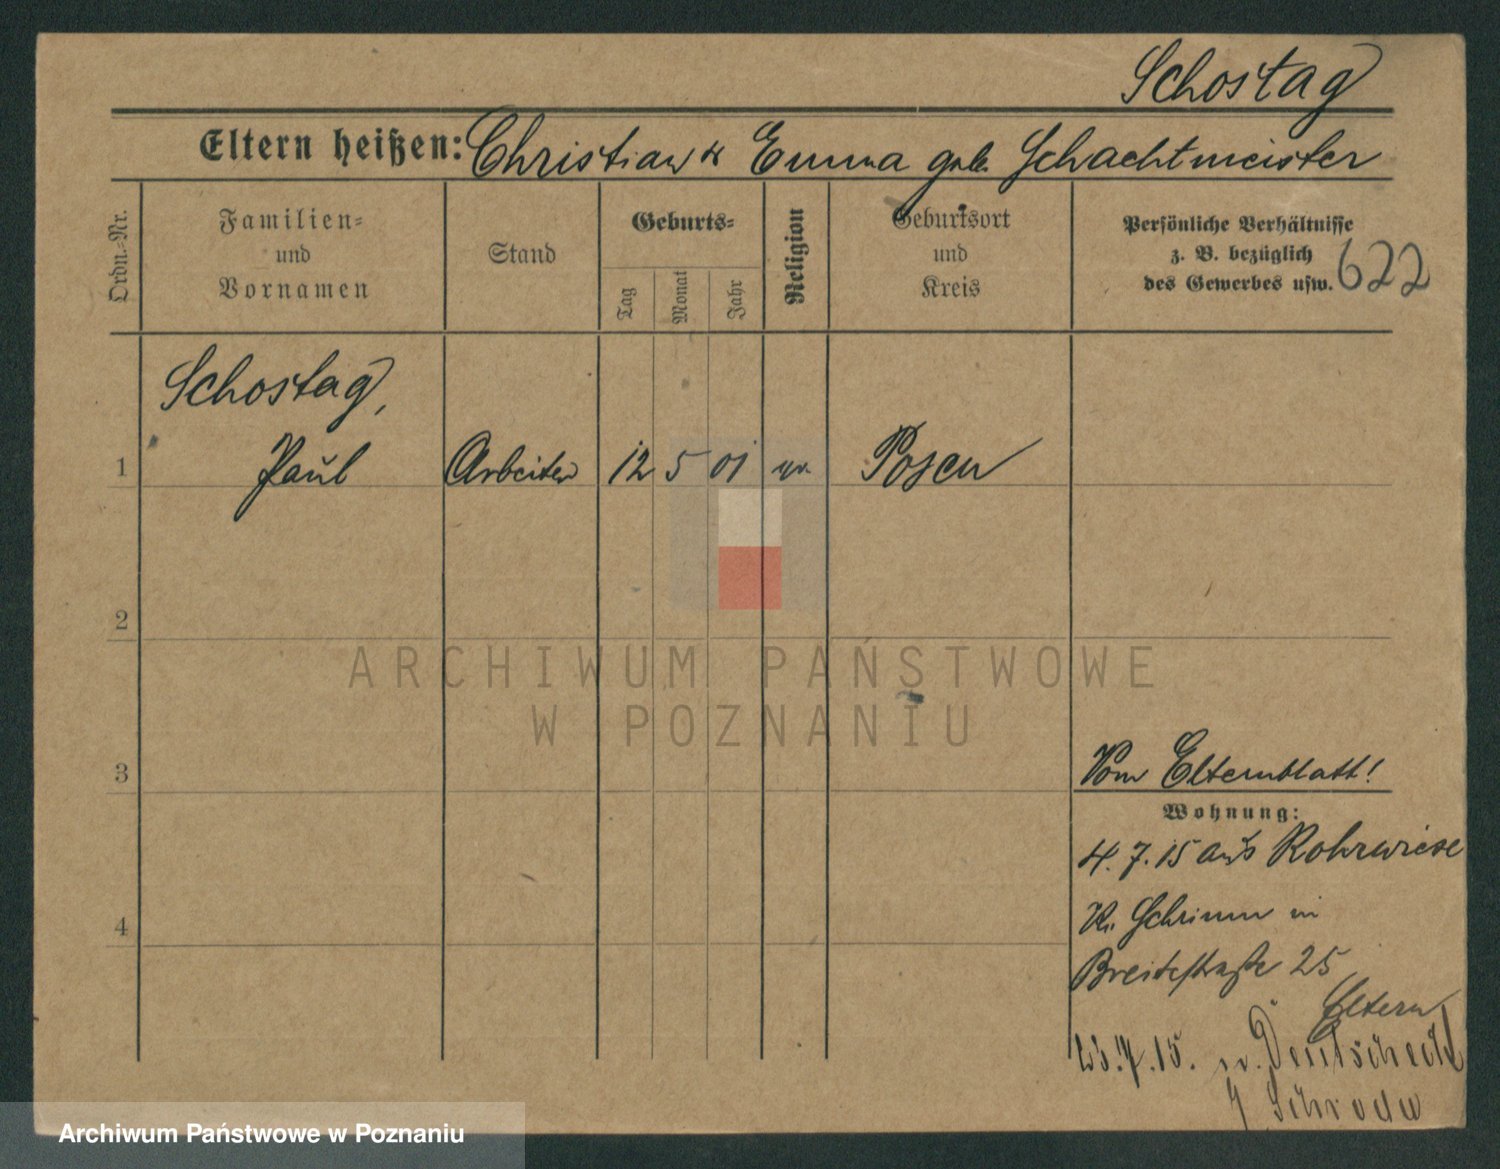 Schostag
Eltern heißen: Christian & Emma geb. Schachtmeister
Ordn.=Nr.
Familien=
und
Vornamen
Stand
Geburts=
Tag
Monat
Jahr
Religion
Geburtsort
und
Kreis
Persönliche Verhältnisse
z. B. bezüglich
des Gewerbes usw.
622
Schostag,
1 Paul Arbeiter 12 5 01 ev. Posen
2
ARCHIWUM PAŃSTWOWE
W POZNANIU
3
Vom Elternblatt!
Wohnung:
4. 7. 15 aus Rohrwiese
Kr. Schrimm in
4
Breitestraße 25
Eltern
23.7.15. n. Deutscheck
Schroda
Archiwum Państwowe w Poznaniu